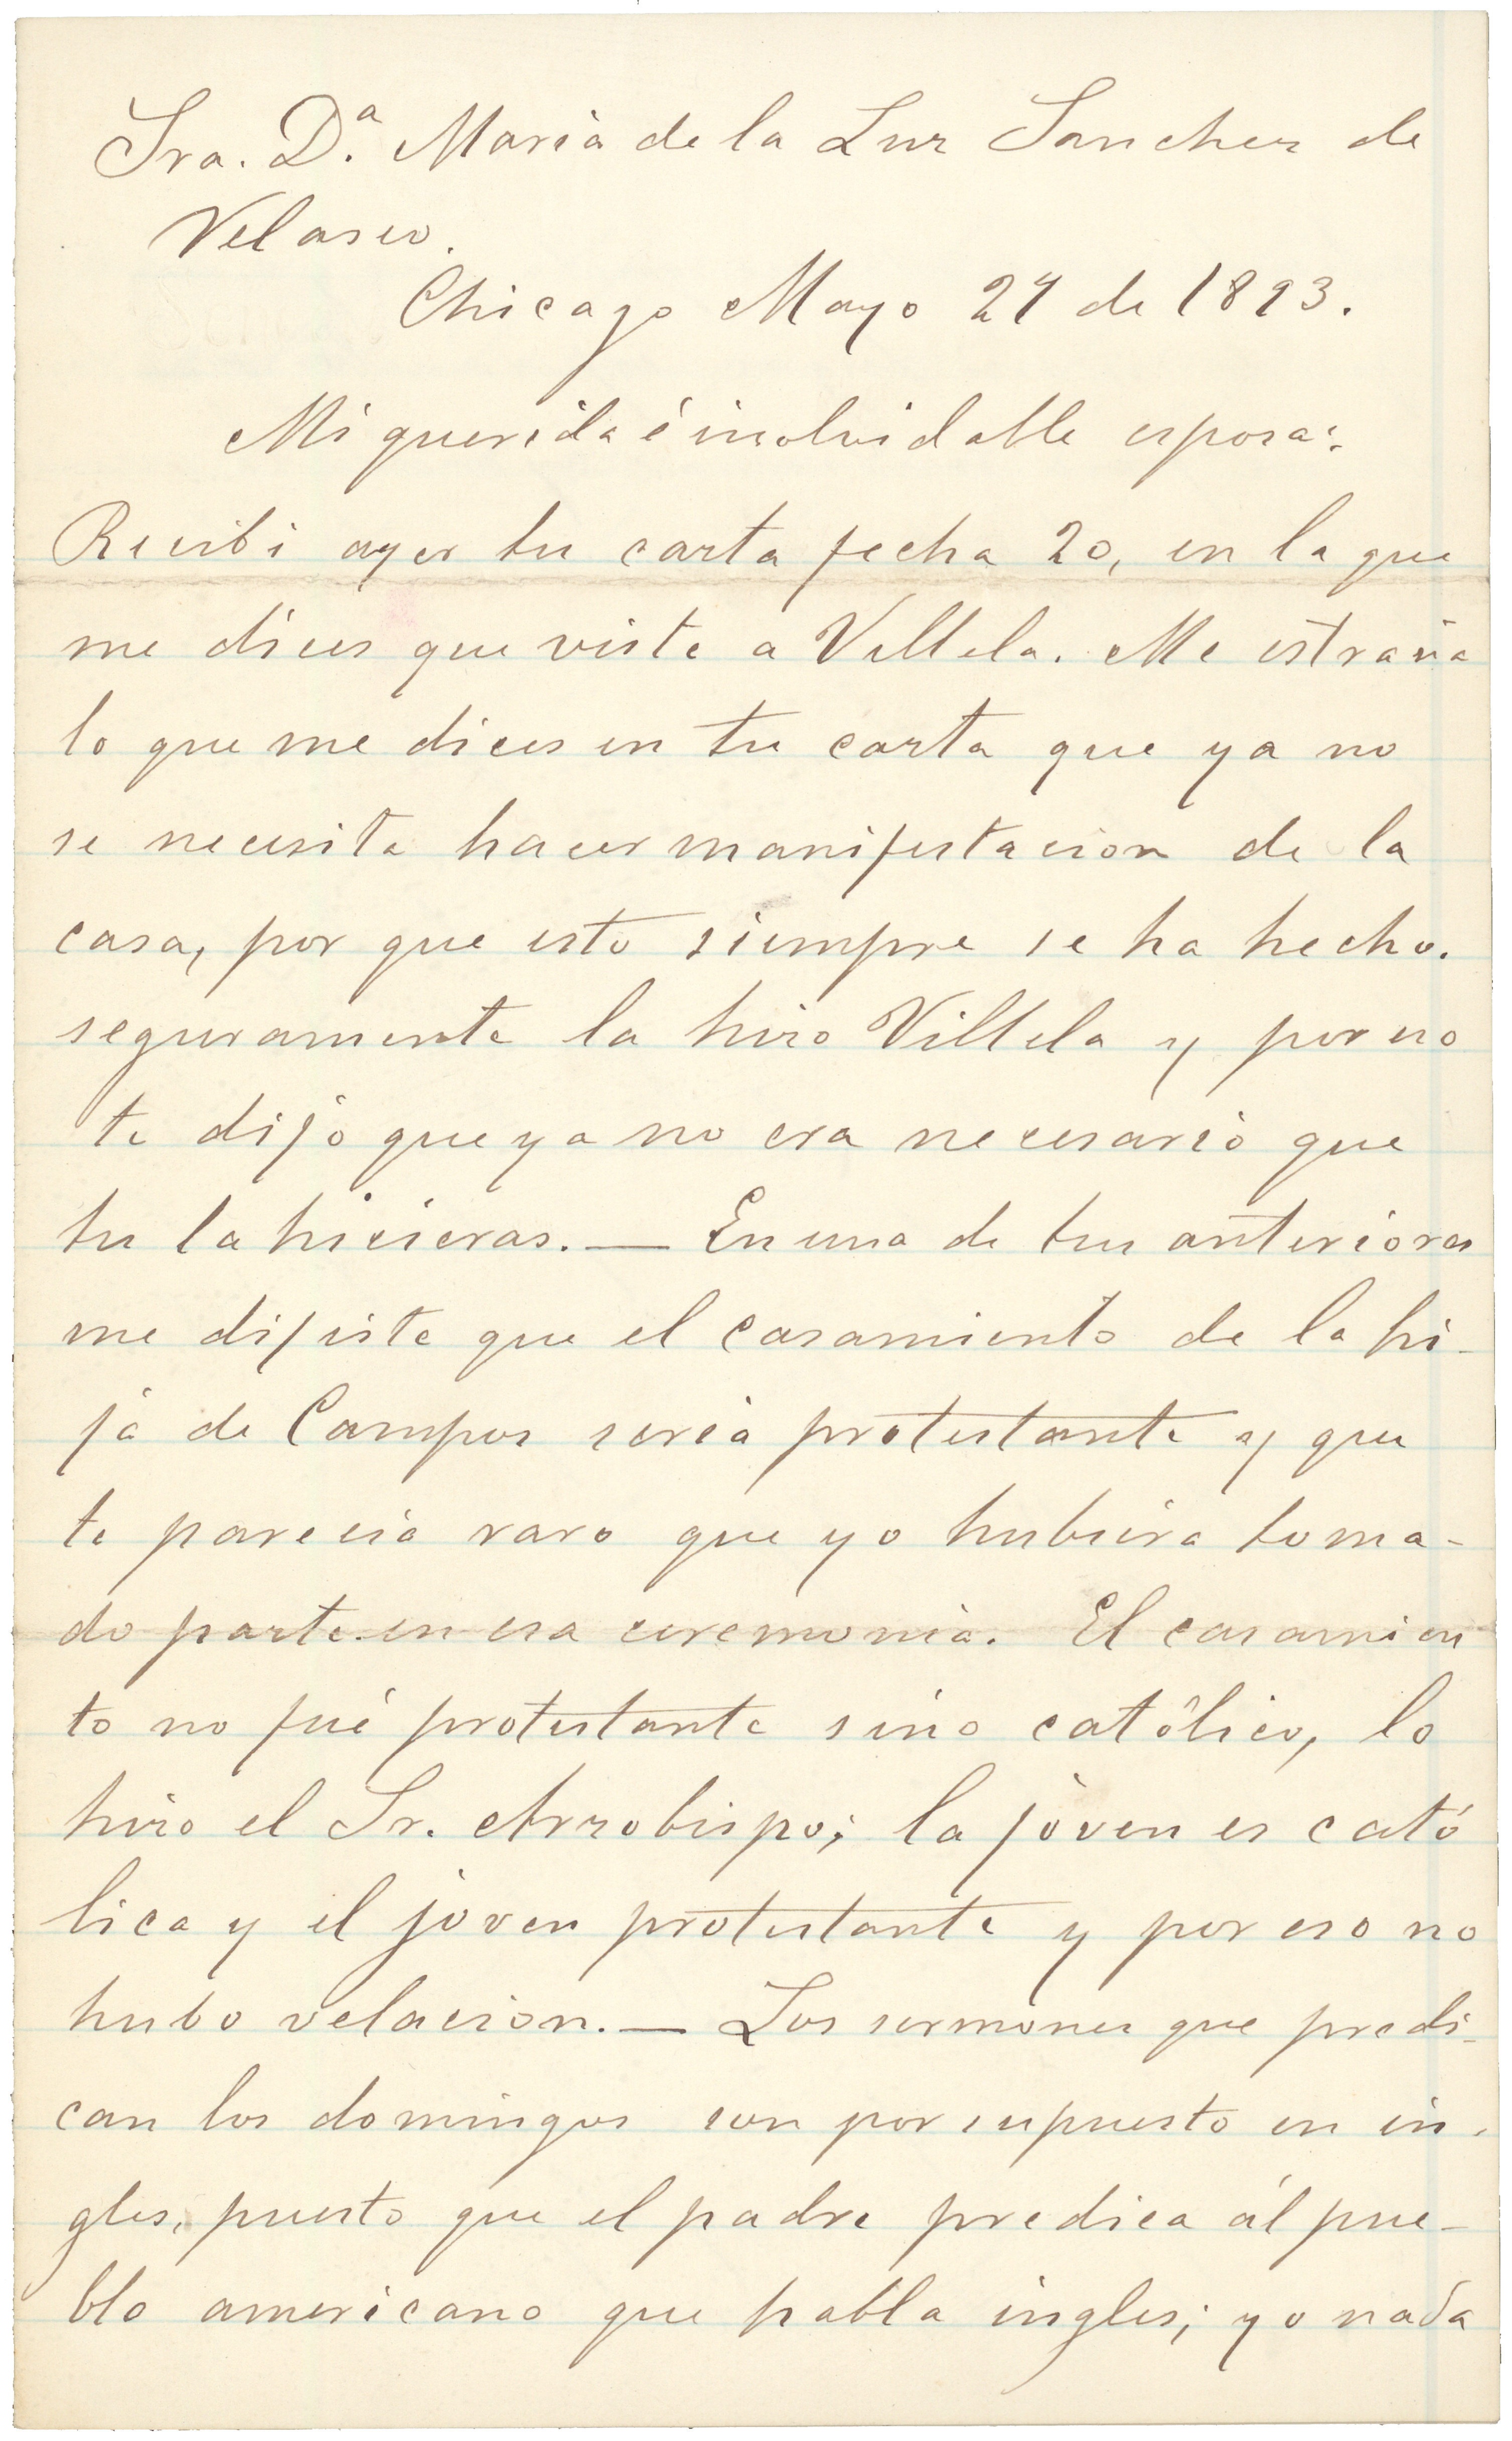 Sra. D.ª Maria de la Luz Sanchez de
Velasco.
Chicago Mayo 24 de 1893.
Mi querida é inolvidable esposa:
Recibi ayer tu carta fecha 20, en la que
me dices que viste a Villela. Me estraña
lo que me dices en tu carta que ya no
se necesita hacer manifestacion de la
casa, por que esto siempre se ha hecho.
seguramente la hizo Villela y por eso
te dijo que ya no era necesario que
tu la hicieras. — En una de tus anteriores
me dijiste que el casamiento de la hi-
ja de Campos seria protestante y que
te parecia raro que yo hubiera toma-
do parte en esa ceremonia. El casamien
to no fué protestante sino católico, lo
hizo el Sr. Arzobispo; la jóven es cató
lica y el jóven protestante y por eso no
hubo velacion. — Los sermones que predi-
can los domingos son por supuesto en in-
gles, puesto que el padre predica ál pue-
blo americano que habla ingles; yo nada